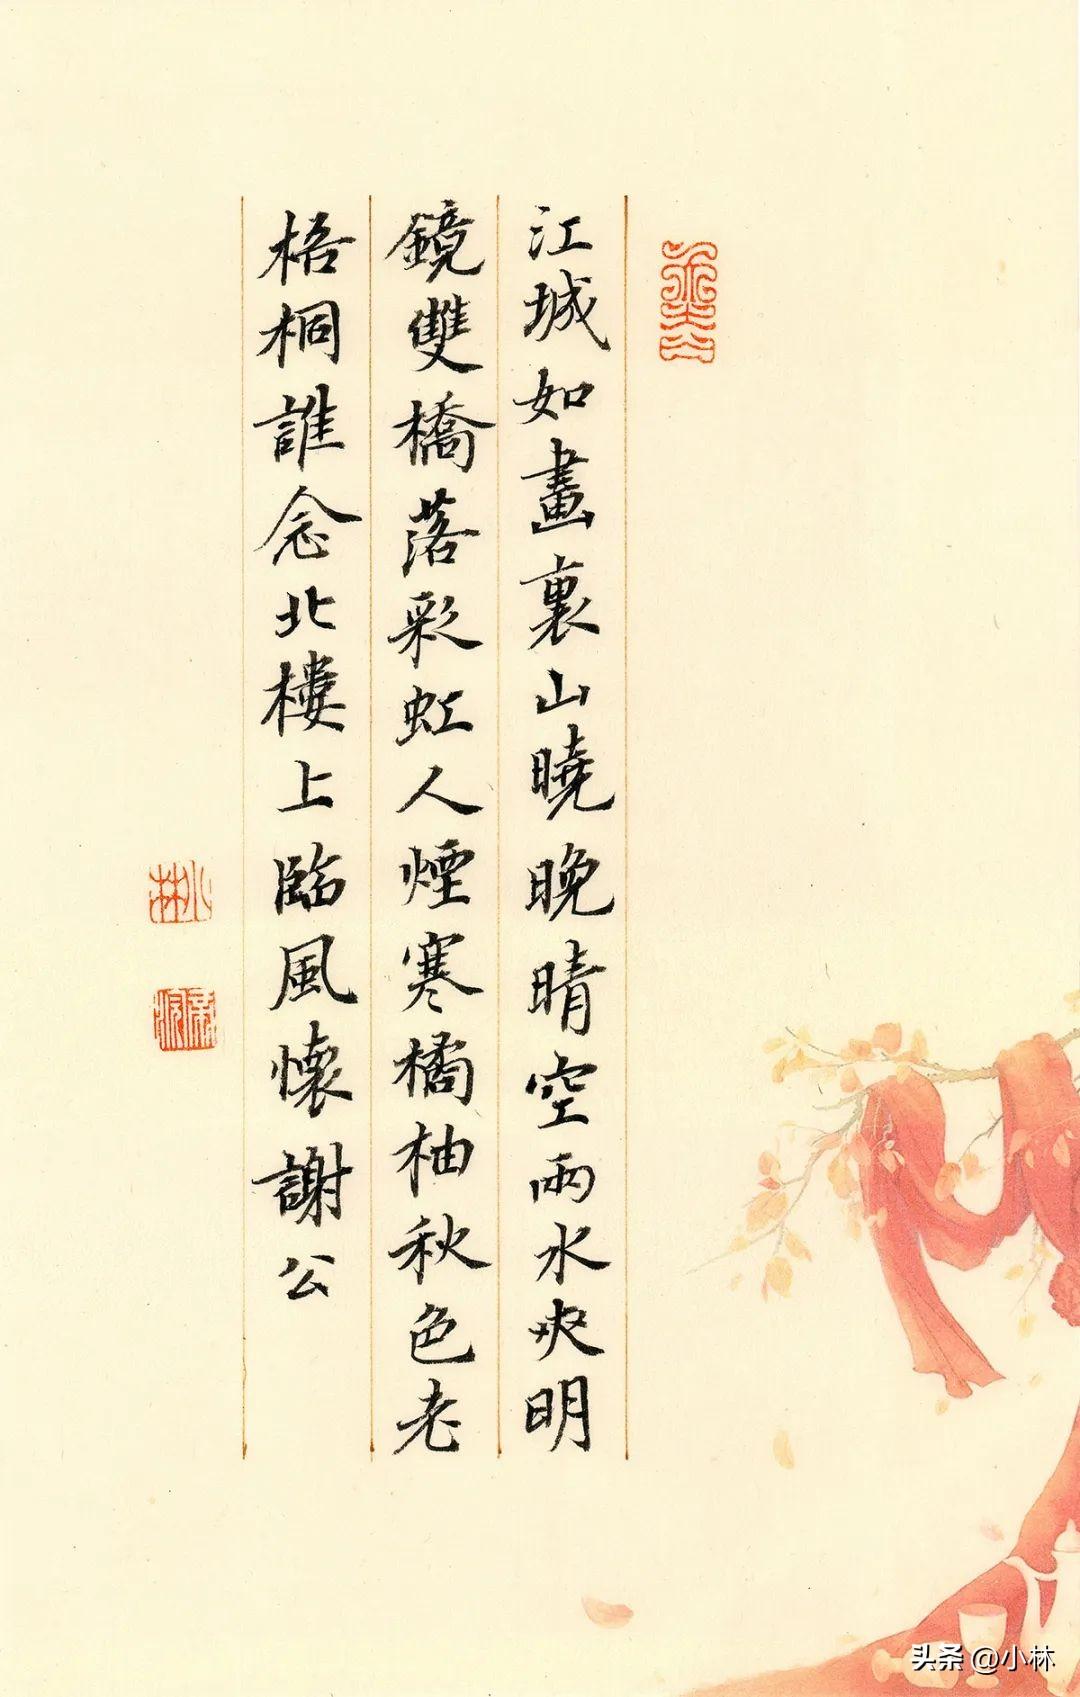 江城如畫裏山曉晚晴空兩水夾明
鏡雙橋落彩虹人煙寒橘柚秋色老
梧桐誰念北樓上臨風懷謝公
小林
头条 @小林